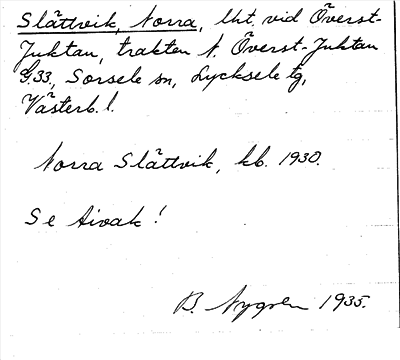 Slättvik, Norra, lht. vid Överst-
Juktan, trakten N. Överst-Juktan
G.33, Sorsele sn, Lycksele tg,
Västerb. l.
Norra Slättvik, kb. 1930.
Se Aivak!
B. Nygren 1935.